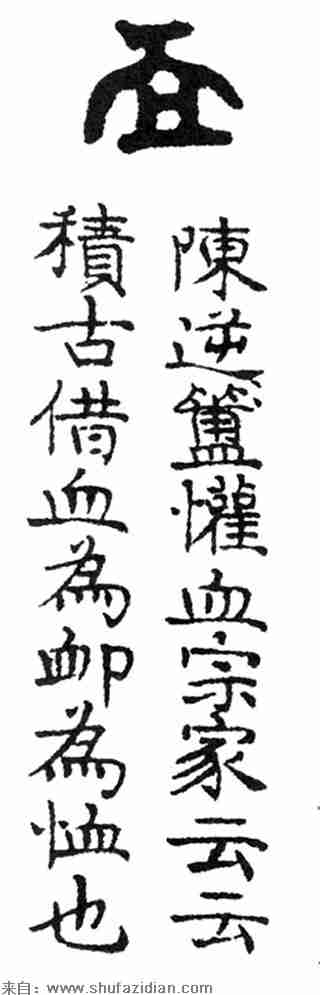 陳逆簠懽血宗家云云
積古借血為卹為恤也
来自：www.shufazidian.com